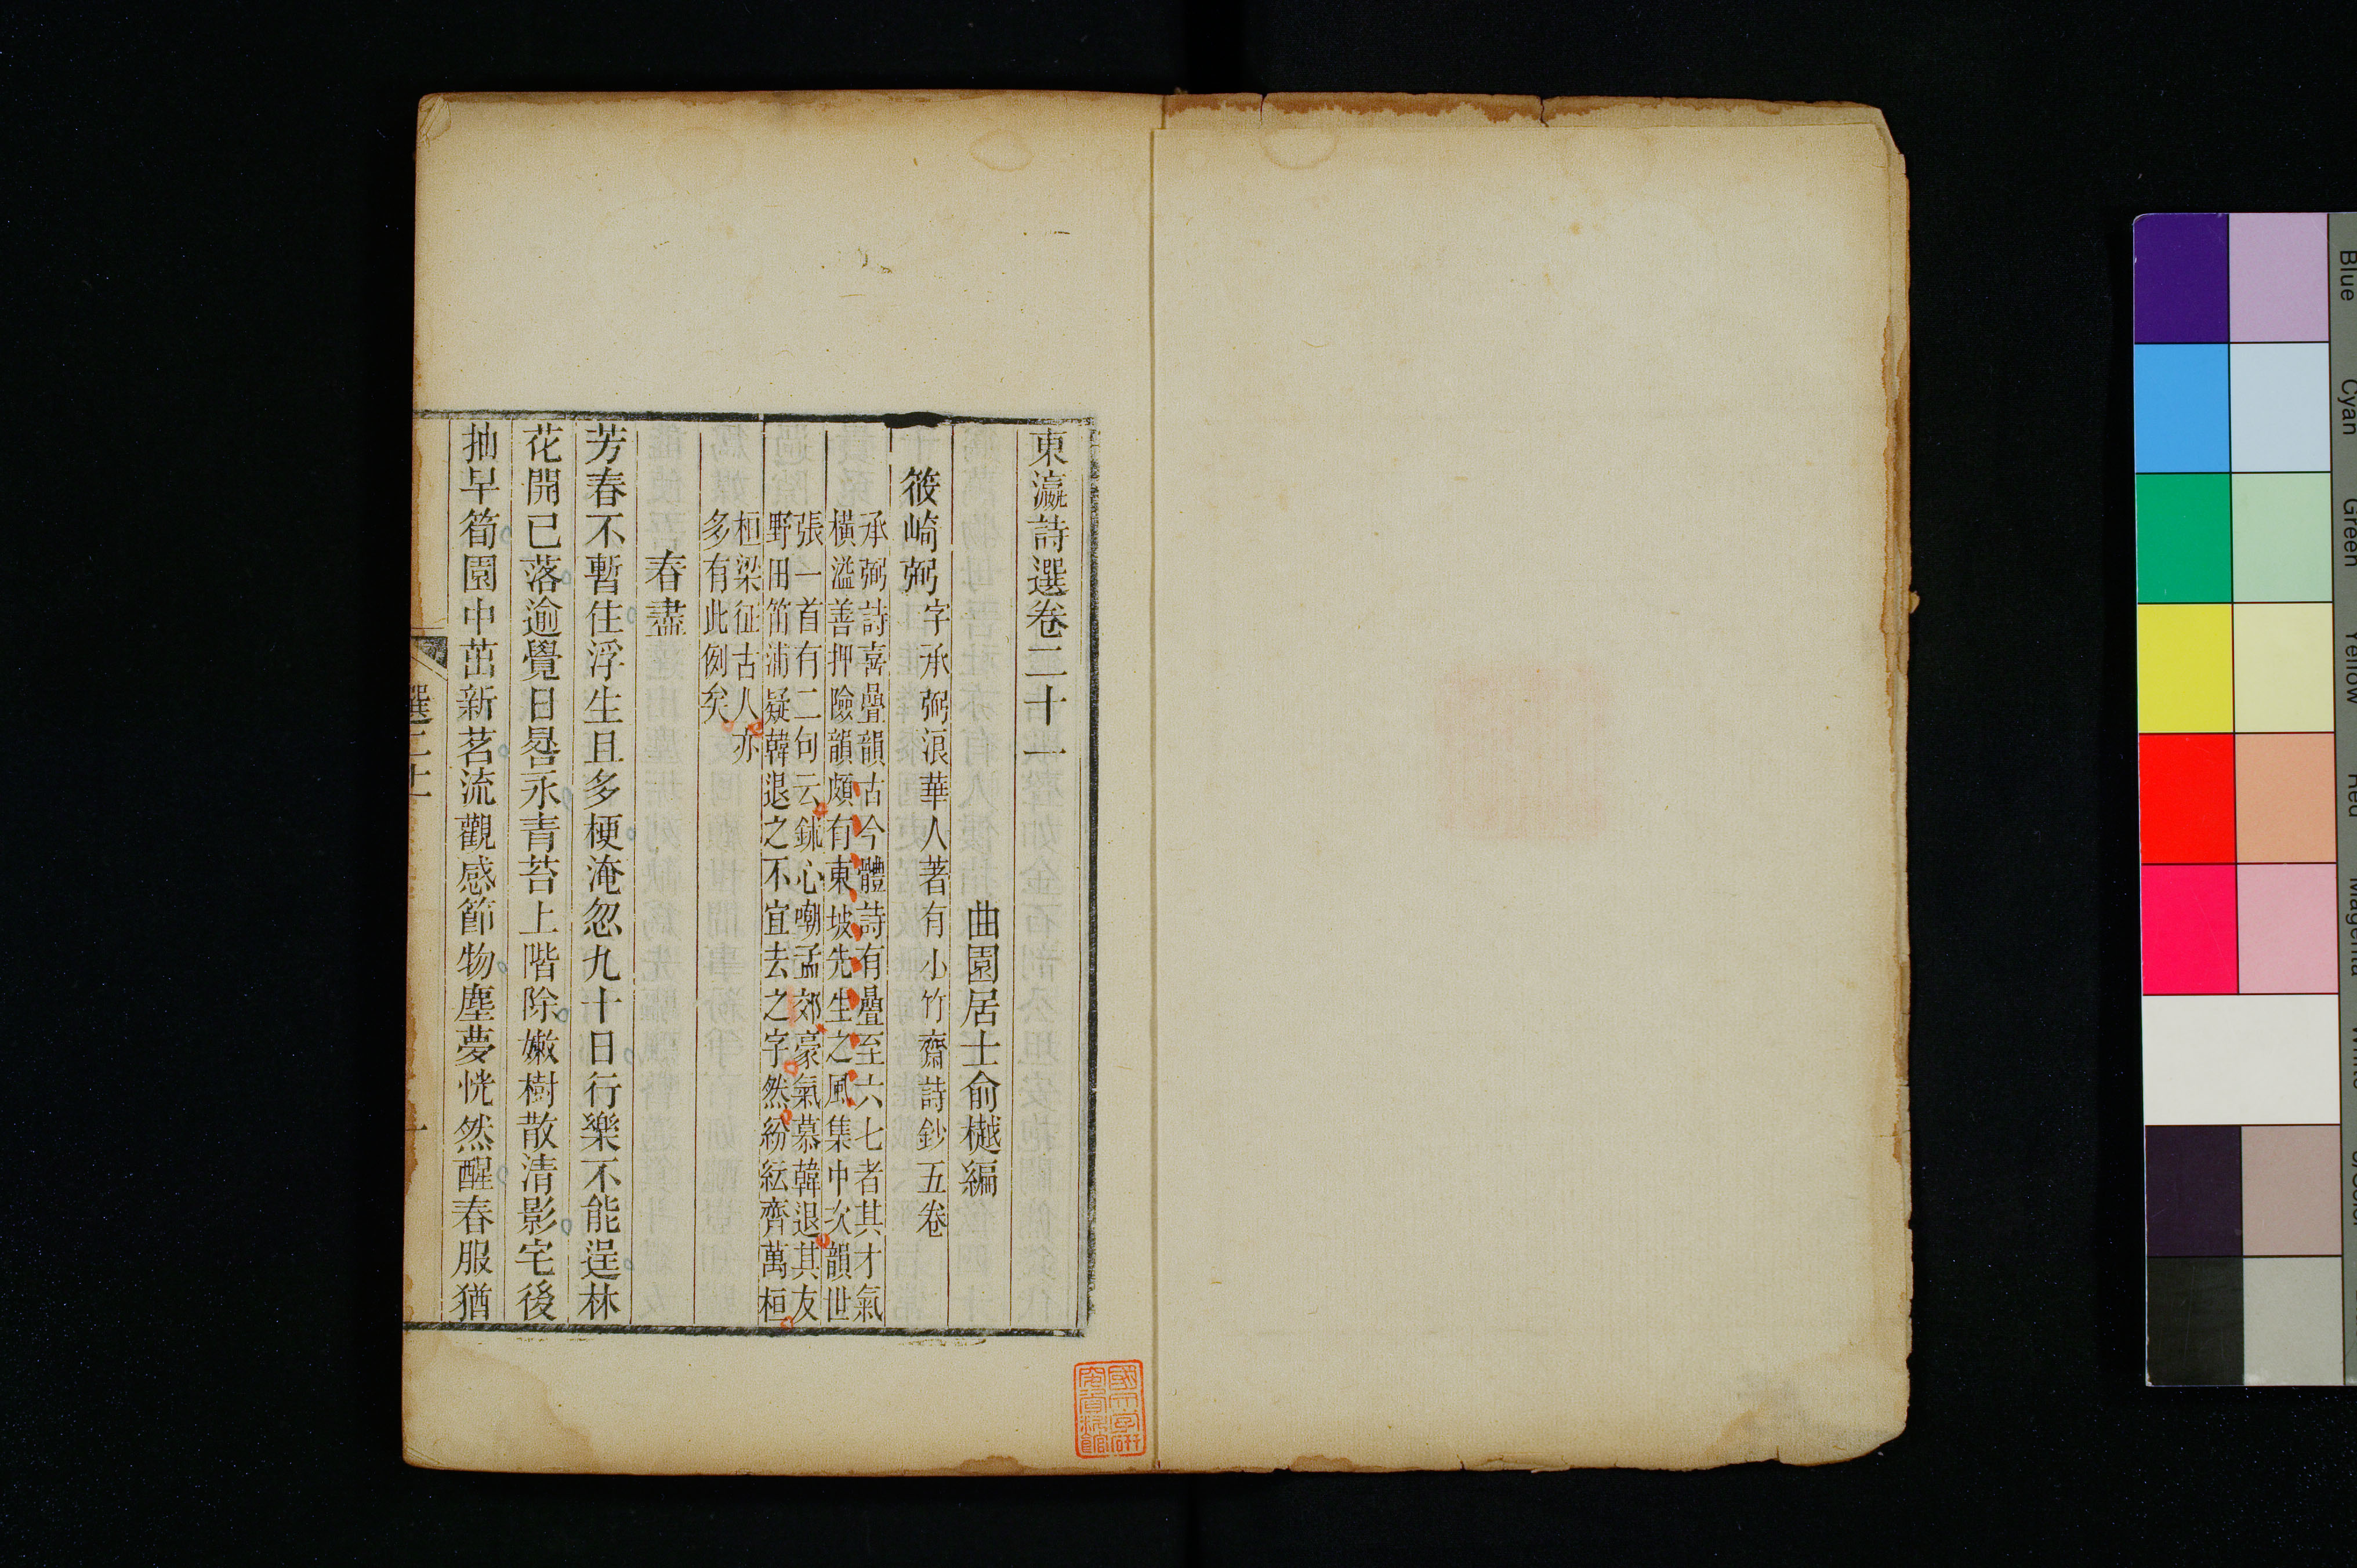 東瀛詩選卷二十一
曲園居士俞樾編
筱崎弼
字承弼浪華人著有小竹齋詩鈔五卷
承弼詩喜疊韻古今體詩有疊至六七者其才氣
橫溢善押險韻頗有東坡先生之風集中次韻世
張一首有二句云鉥心嘲孟郊豪氣慕韓退其友
野田笛浦疑韓退之不宜去之字然紛紜齊萬桓
桓梁征古人亦
多有此例矣
春盡
芳春不暫住浮生且多梗淹忽九十日行樂不能逞林
花開已落逾覺日晷永青苔上階除嫩樹散清影宅後
抽早筍園中茁新茗流觀感節物塵夢恍然醒春服猶
選二十一
一
國文學研
究資料館
Blue
Cyan
Green
Yellow
Red
Magenta
White
3/Color